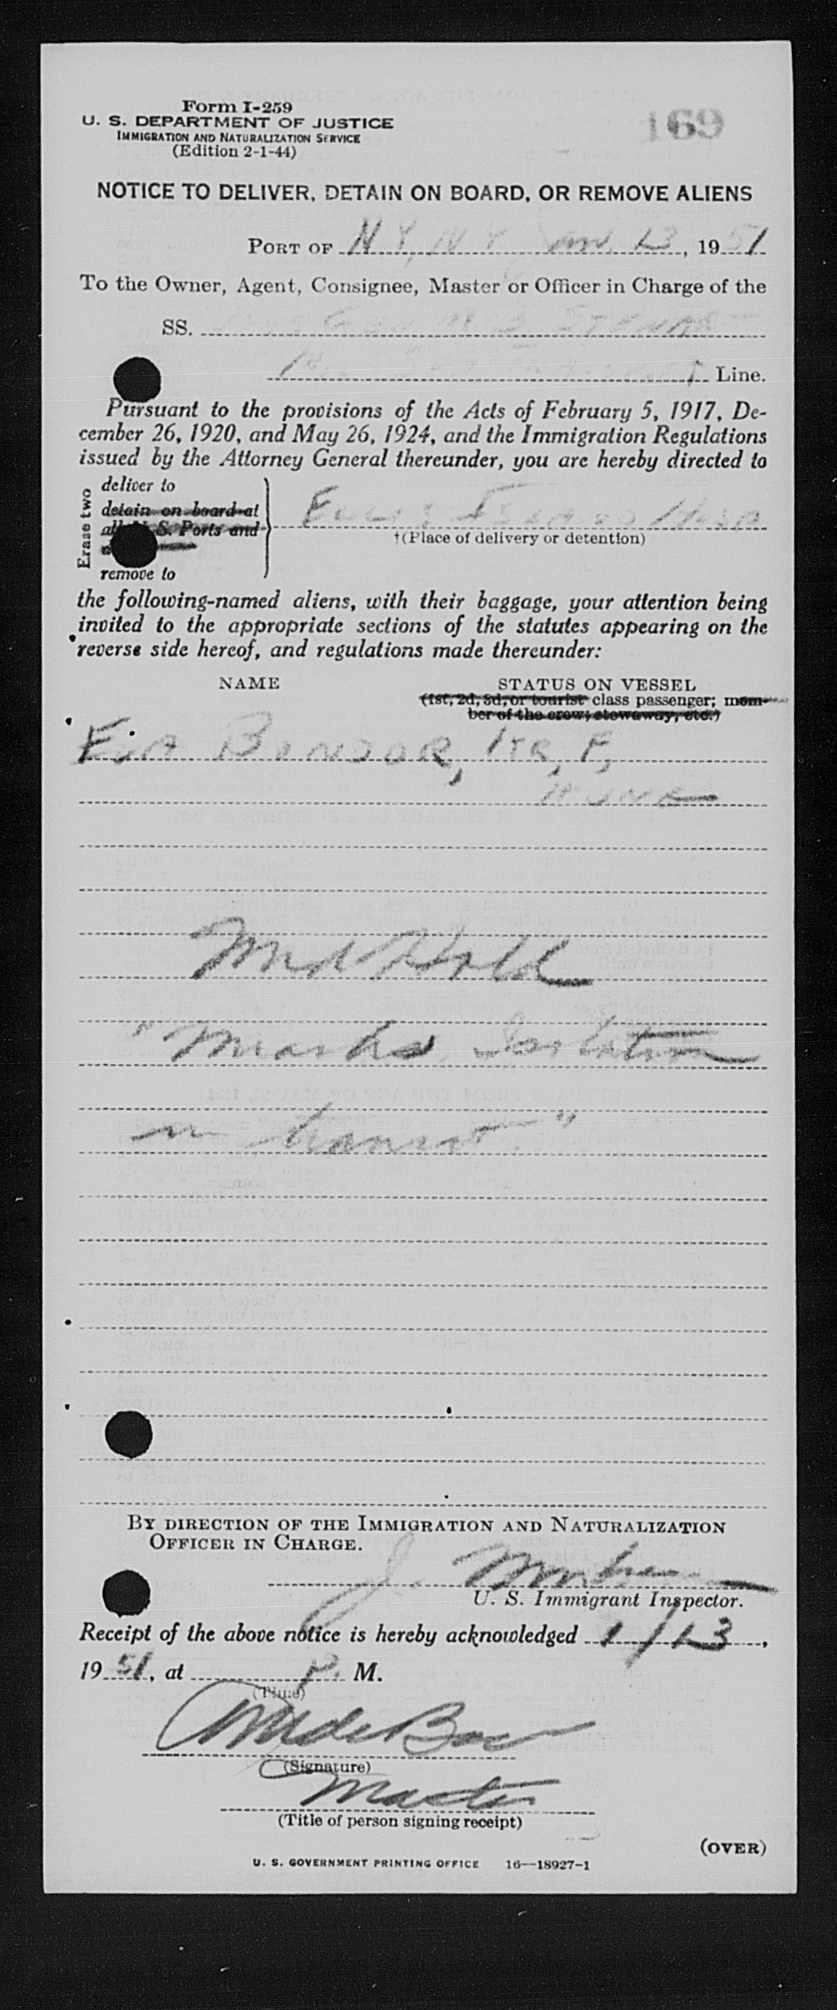 Form I-259
169
U. S. DEPARTMENT OF JUSTICE
IMMIGRATION AND NATURALIZATION SERVICE
(Edition 2-1-44)
NOTICE TO DELIVER, DETAIN ON BOARD, OR REMOVE ALIENS
PORT OF N Y, N Y Jan. 13, 1951
To the Owner, Agent, Consignee, Master or Officer in Charge of the
SS. Gen M B Stewart
Line.
Pursuant to the provisions of the Acts of February 5, 1917, De-
cember 26, 1920, and May 26, 1924, and the Immigration Regulations
issued by the Attorney General thereunder, you are hereby directed to
Erase two
deliver to
detain on board at
all U. S. Ports and
remove to
Ellis Island Hosp
†(Place of delivery or detention)
the following-named aliens, with their baggage, your attention being
invited to the appropriate sections of the statutes appearing on the
reverse side hereof, and regulations made thereunder:
NAME
STATUS ON VESSEL
(1st, 2d, 3d, or tourist class passenger; mem-
ber of the crew; stowaway, etc.)
Eva Bondor, 1 yr, F,
Med Hold
"Measles, Isolation
in transit."
BY DIRECTION OF THE IMMIGRATION AND NATURALIZATION
OFFICER IN CHARGE.
J.
U. S. Immigrant Inspector.
Receipt of the above notice is hereby acknowledged 1/13,
1951, at P. M.
(Time)
(Signature)
Master
(Title of person signing receipt)
(OVER)
U. S. GOVERNMENT PRINTING OFFICE 16—18927-1